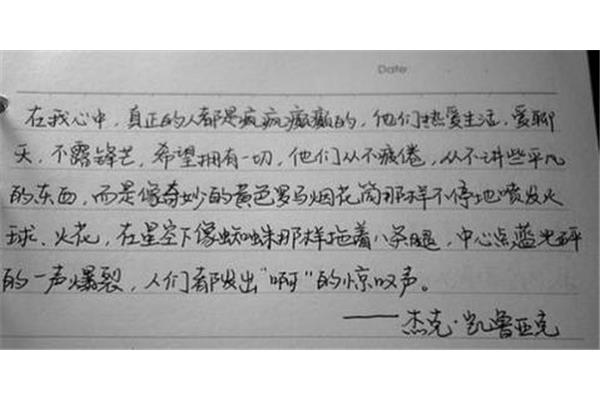 Date:
在我心中，真正的人都是疯疯癫癫的，他们热爱生活，爱聊
天，不露锋芒，希望拥有一切，他们从不疲倦，从不讲些平凡
的东西，而是像奇妙的黄色罗马烟花筒那样不停地喷发火
球、火花，在星空下像蜘蛛那样拖着八条腿，中心点蓝光砰
的一声爆裂，人们都发出“啊”的惊叹声。
——杰克·凯鲁亚克